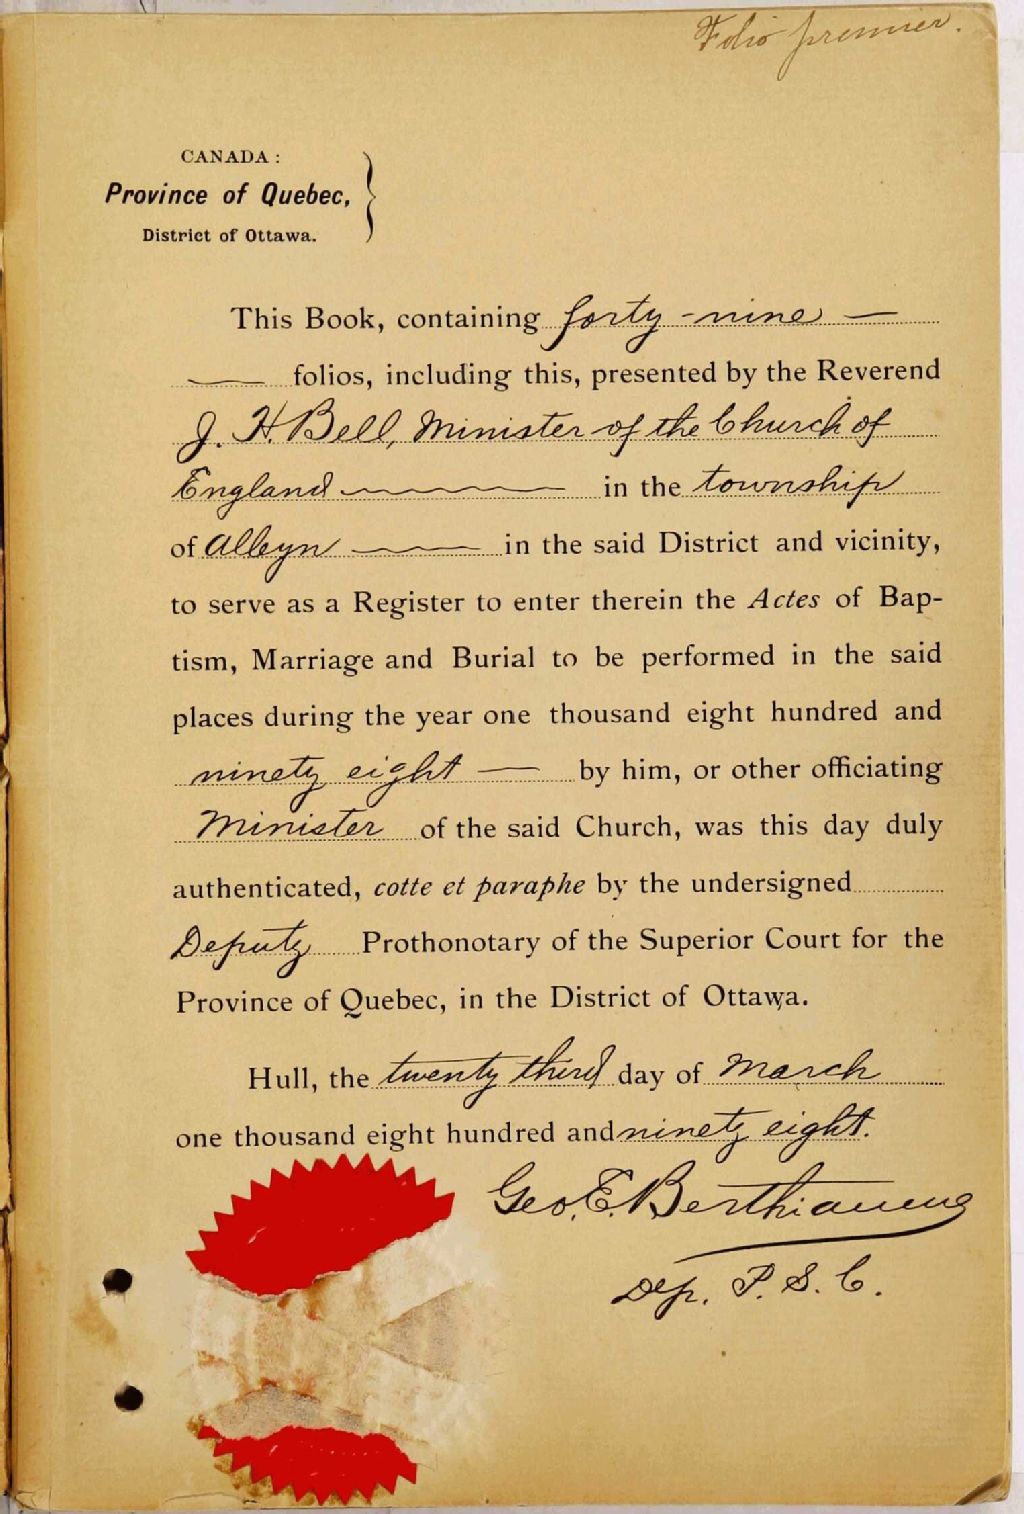 Folio premier.
CANADA :
Province of Quebec,
District of Ottawa.
This Book, containing forty-nine —
— folios, including this, presented by the Reverend
J. H. Bell, Minister of the Church of
England — in the township
of Alleyn — in the said District and vicinity,
to serve as a Register to enter therein the Actes of Bap-
tism, Marriage and Burial to be performed in the said
places during the year one thousand eight hundred and
ninety eight — by him, or other officiating
Minister of the said Church, was this day duly
authenticated, cotte et paraphe by the undersigned
Deputy Prothonotary of the Superior Court for the
Province of Quebec, in the District of Ottawa.
Hull, the twenty third day of March
one thousand eight hundred and ninety eight.
Geo. E. Berthiaume
Dep. P. S. C.